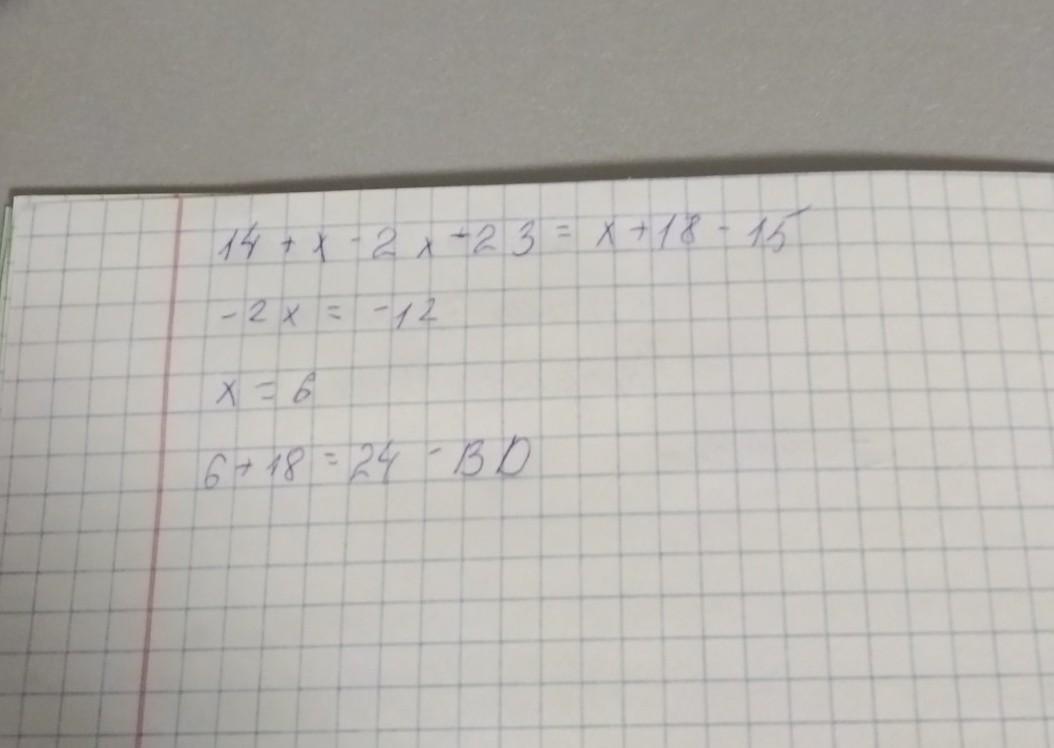 14 + x - 2x - 23 = x + 18 - 15
-2x = -12
x = 6
6 + 18 = 24 - BD